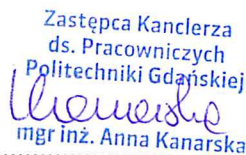 Zastępca Kanclerza
ds. Pracowniczych
Politechniki Gdańskiej
mgr inż. Anna Kanarska